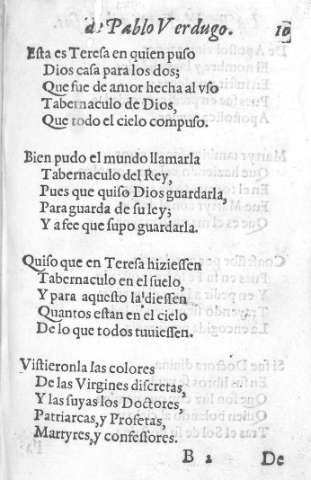 de Pablo Verdugo. 10
Esta es Teresa en quien puso
Dios casa para los dos;
Que fue de amor hecha al vso
Tabernaculo de Dios,
Que todo el cielo compuso.
Bien pudo el mundo llamarla
Tabernaculo del Rey,
Pues que quiso Dios guardarla,
Para guarda de su ley;
Y a fee que supo guardarla.
Quiso que en Teresa hiziessen
Tabernaculo en el suelo,
Y para aquesto la diessen
Quantos estan en el cielo
De lo que todos tuuiessen.
Vistieronla las colores
De las Virgines discretas,
Y las suyas los Doctores,
Patriarcas, y Profetas,
Martyres, y confessores.
B 2 De